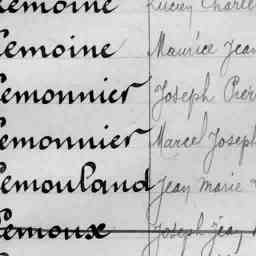 Lemoine Lucien Charles
Lemoine Maurice Jean
Lemonnier Joseph Pierre
Lemonnier Marcel Joseph
Lemouland Jean Marie
Lemoux Joseph Jean